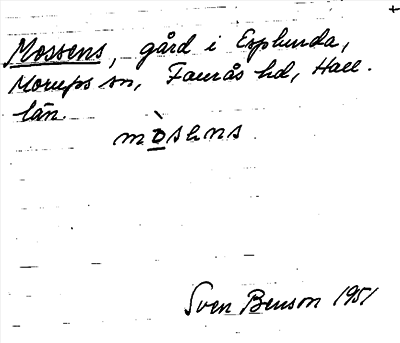 +
Mossens, gård i Esplunda,
Morups sn, Faurås hd, Hall.
län.
mò̲sens
Sven Benson 1951